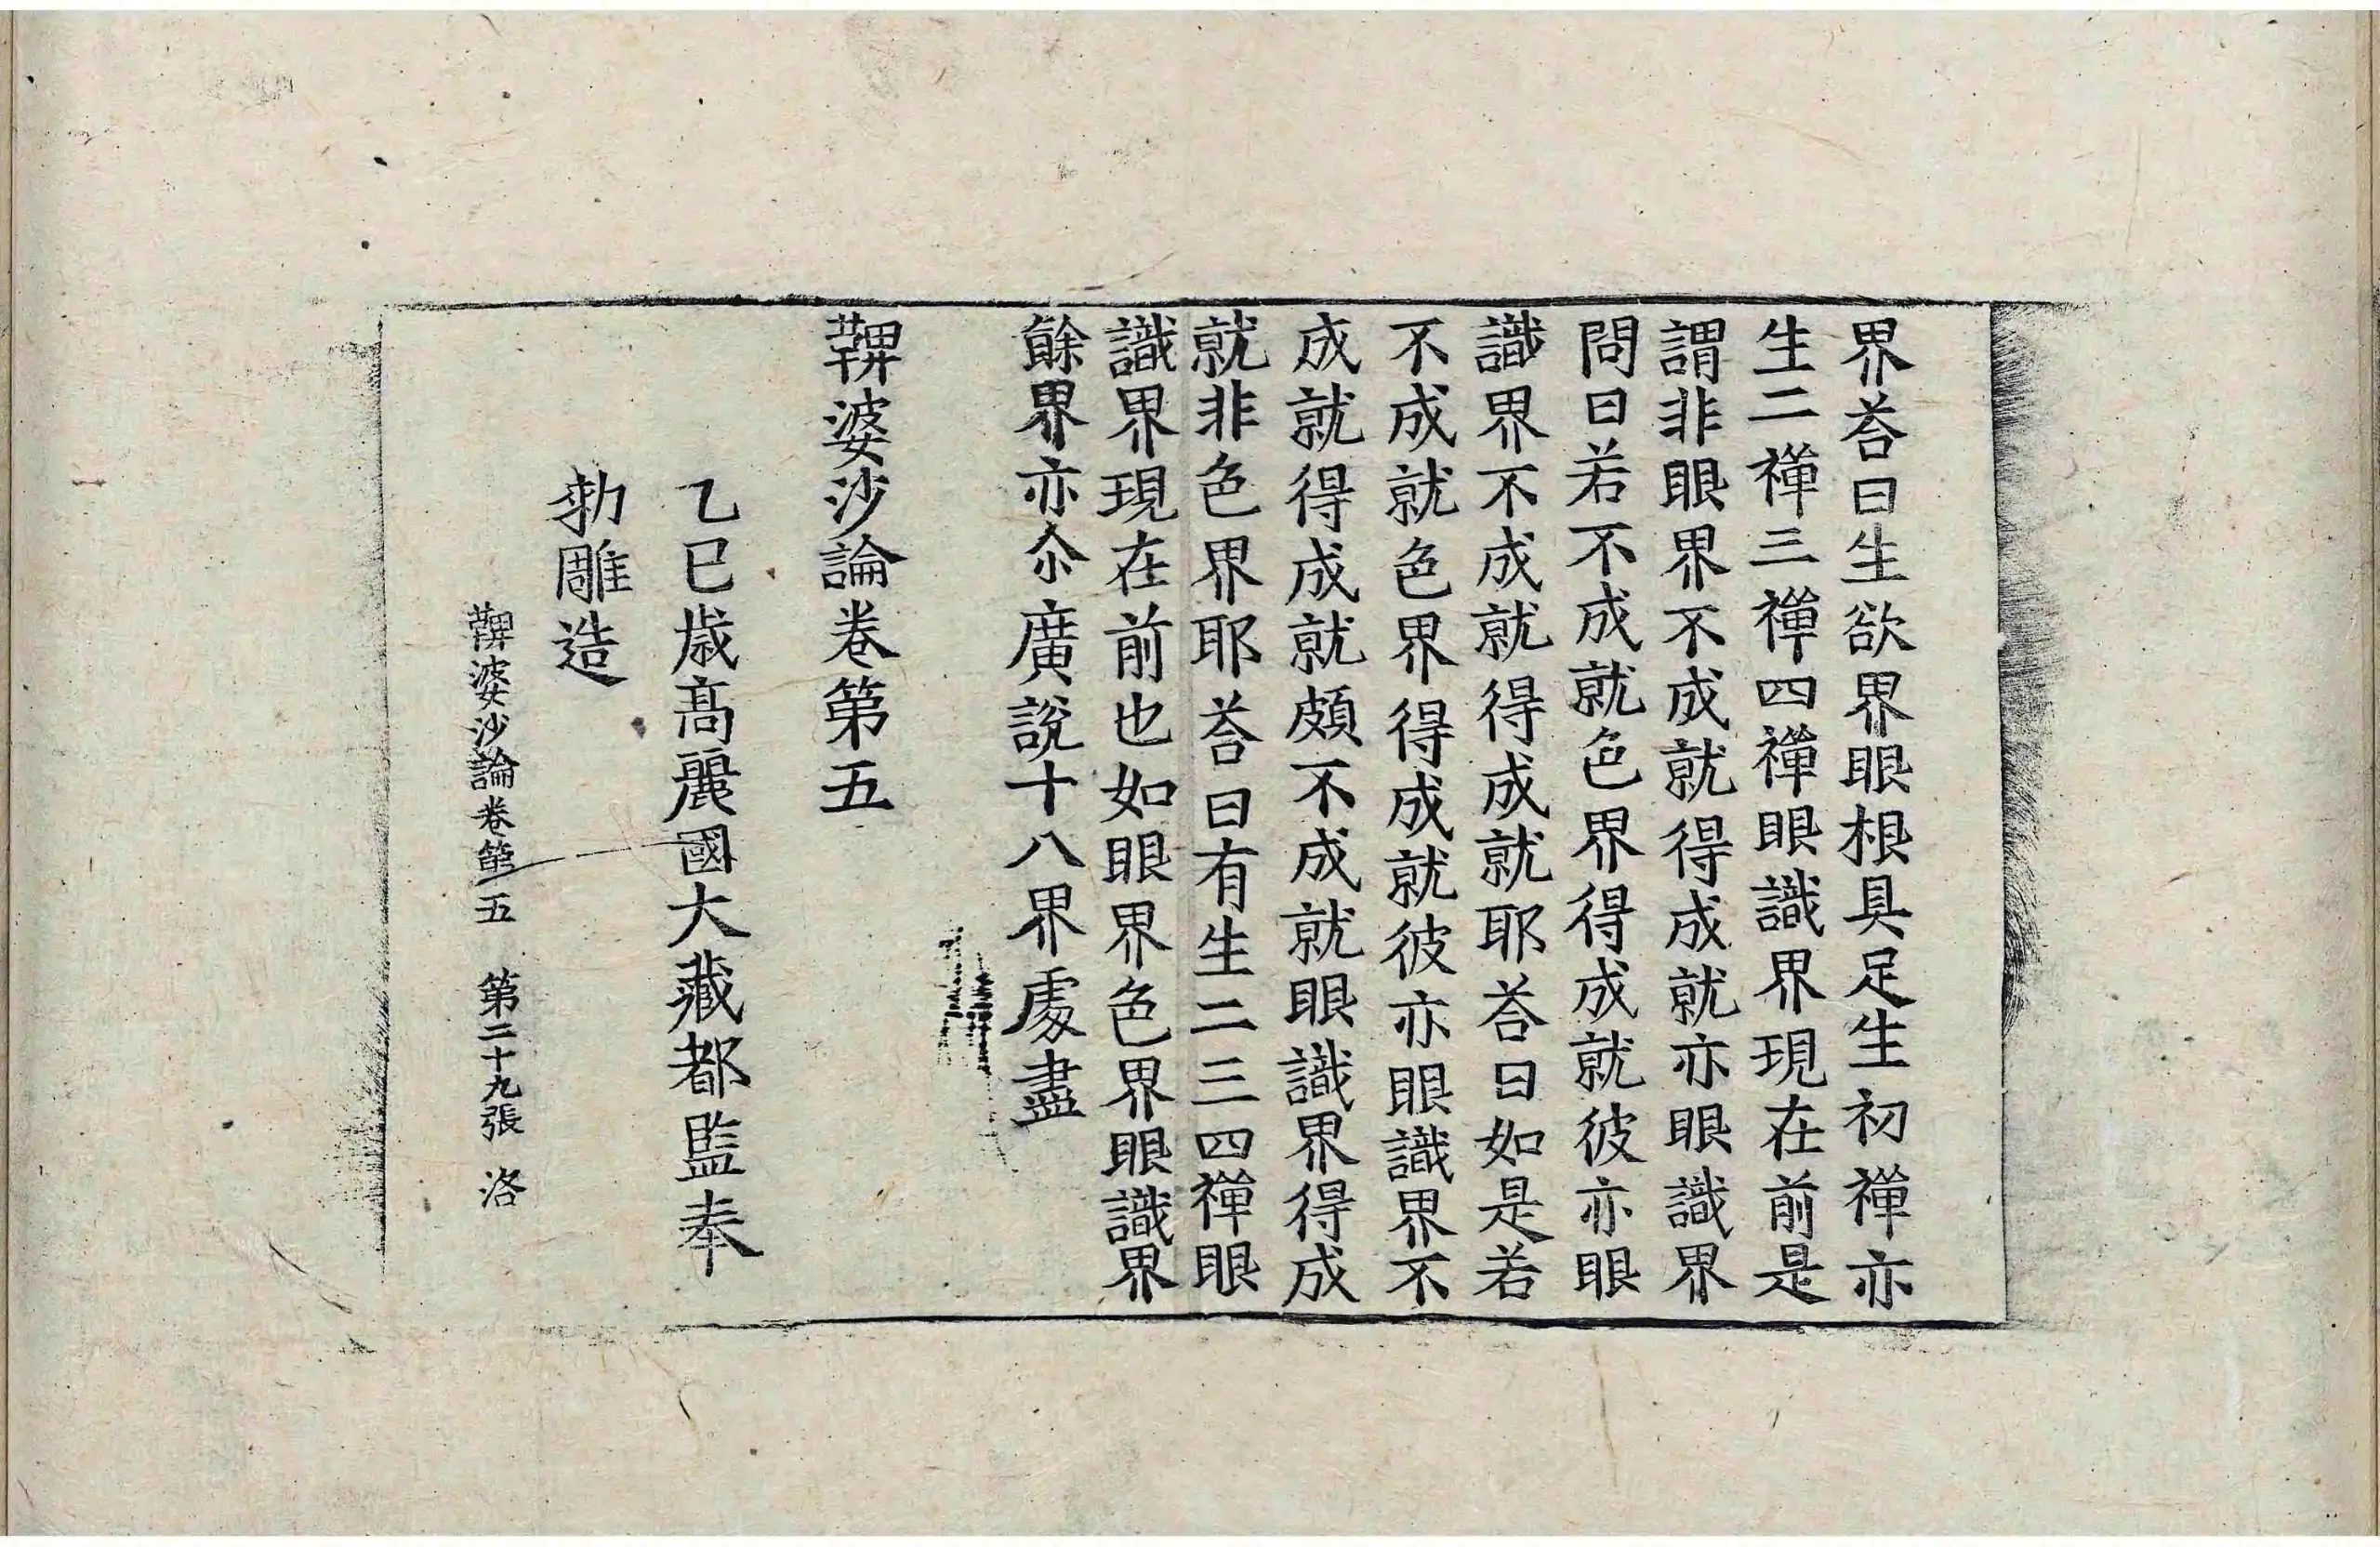 界荅曰生欲界眼根具足生初禪亦
生二禪三禪四禪眼識界現在前是
謂非眼界不成就得成就亦眼識界
問曰若不成就色界得成就彼亦眼
識界不成就得成就耶荅曰如是若
不成就色界得成就彼亦眼識界不
成就得成就頗不成就眼識界得成
就非色界耶荅曰有生二三四禪眼
識界現在前也如眼界色界眼識界
餘界亦尒廣說十八界處盡
鞞婆沙論卷第五
乙巳歲高麗國大藏都監奉
勑雕造
鞞婆沙論卷第五 第二十九張 洛